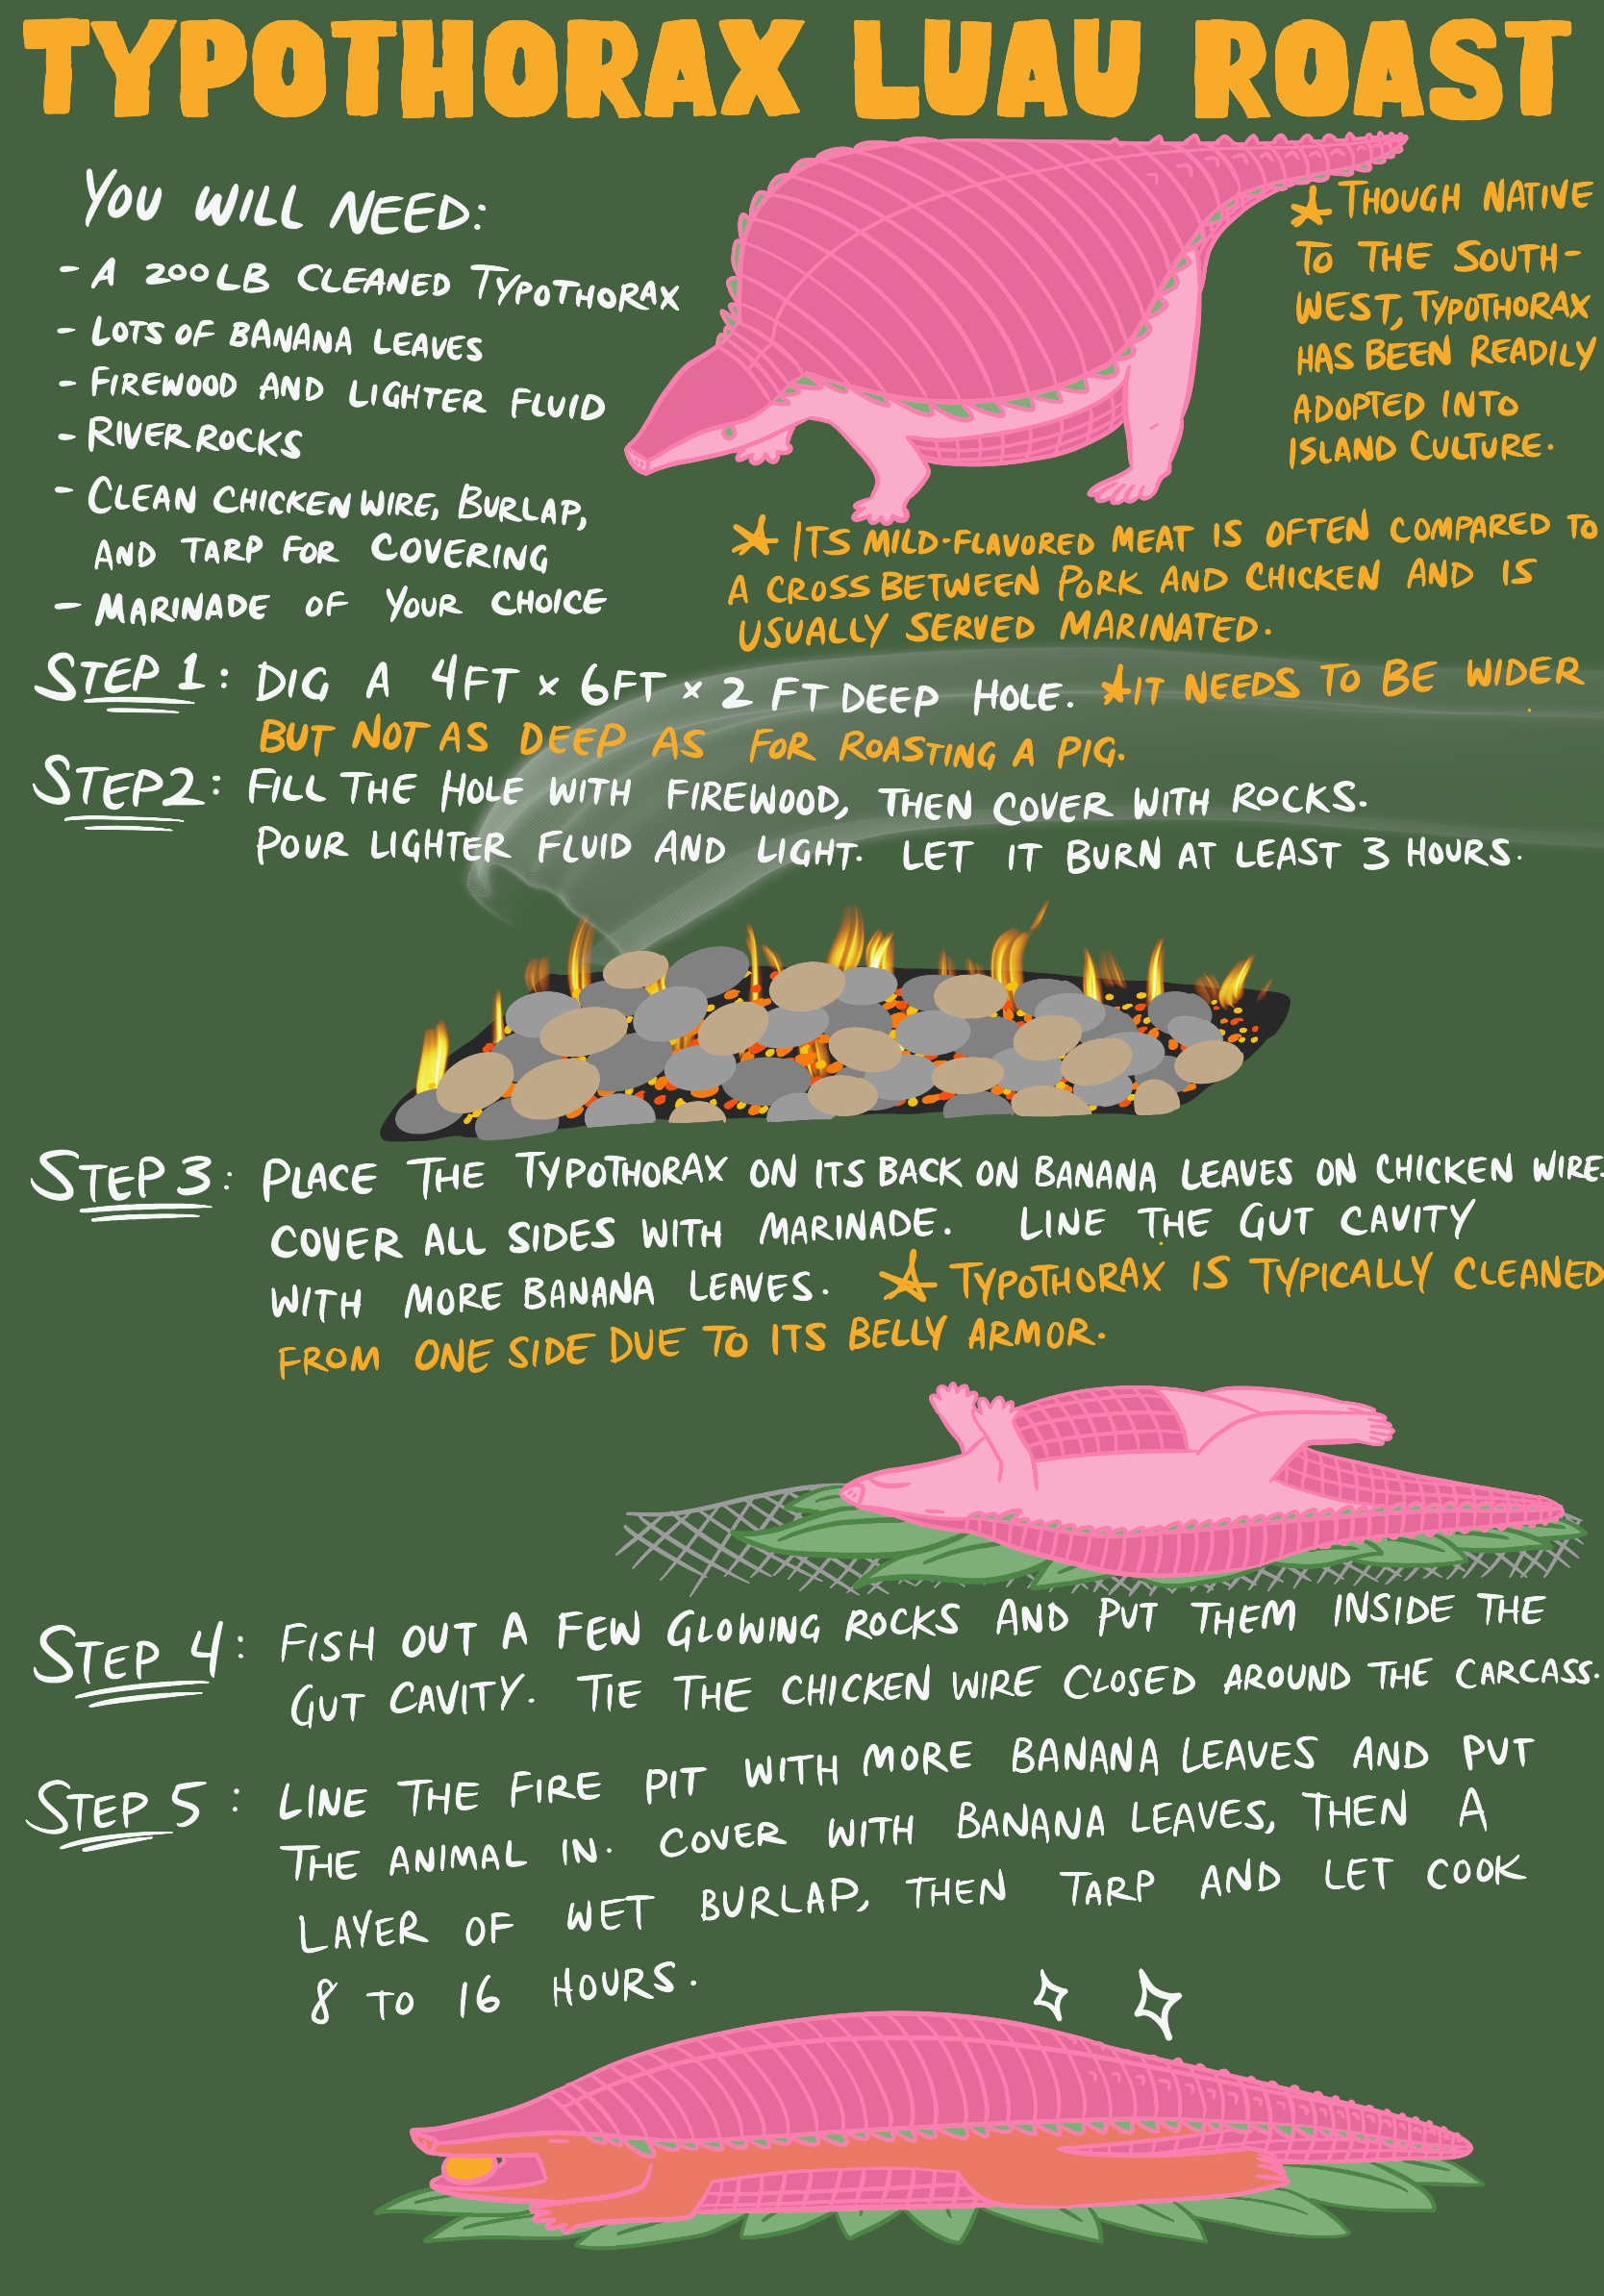 TYPOTHORAX LUAU ROAST
YOU WILL NEED:
- A 200LB CLEANED TYPOTHORAX
- LOTS OF BANANA LEAVES
- FIREWOOD AND LIGHTER FLUID
- RIVER ROCKS
- CLEAN CHICKEN WIRE, BURLAP,
AND TARP FOR COVERING
- MARINADE OF YOUR CHOICE
★ THOUGH NATIVE
TO THE SOUTH-
WEST, TYPOTHORAX
HAS BEEN READILY
ADOPTED INTO
ISLAND CULTURE.
★ ITS MILD-FLAVORED MEAT IS OFTEN COMPARED TO
A CROSS BETWEEN PORK AND CHICKEN AND IS
USUALLY SERVED MARINATED.
STEP 1: DIG A 4FT x 6FT x 2 FT DEEP HOLE. ★IT NEEDS TO BE WIDER
BUT NOT AS DEEP AS FOR ROASTING A PIG.
STEP 2: FILL THE HOLE WITH FIREWOOD, THEN COVER WITH ROCKS.
POUR LIGHTER FLUID AND LIGHT. LET IT BURN AT LEAST 3 HOURS.
STEP 3: PLACE THE TYPOTHORAX ON ITS BACK ON BANANA LEAVES ON CHICKEN WIRE.
COVER ALL SIDES WITH MARINADE. LINE THE GUT CAVITY
WITH MORE BANANA LEAVES. ★ TYPOTHORAX IS TYPICALLY CLEANED
FROM ONE SIDE DUE TO ITS BELLY ARMOR.
STEP 4: FISH OUT A FEW GLOWING ROCKS AND PUT THEM INSIDE THE
GUT CAVITY. TIE THE CHICKEN WIRE CLOSED AROUND THE CARCASS.
STEP 5: LINE THE FIRE PIT WITH MORE BANANA LEAVES AND PUT
THE ANIMAL IN. COVER WITH BANANA LEAVES, THEN A
LAYER OF WET BURLAP, THEN TARP AND LET COOK
8 TO 16 HOURS.